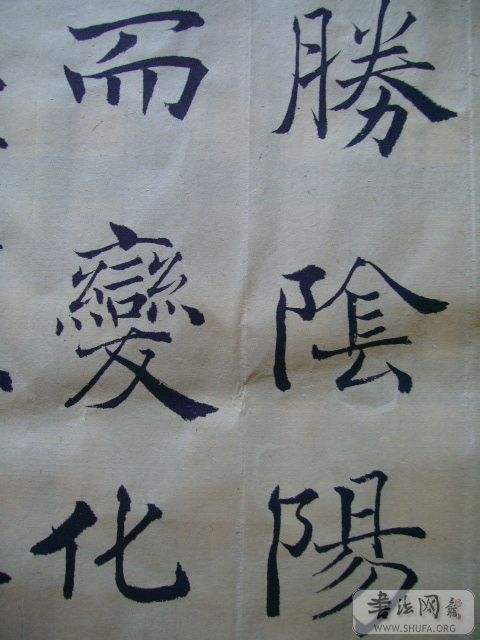 勝陰陽
而變化
書法网
WWW.SHUFA.ORG